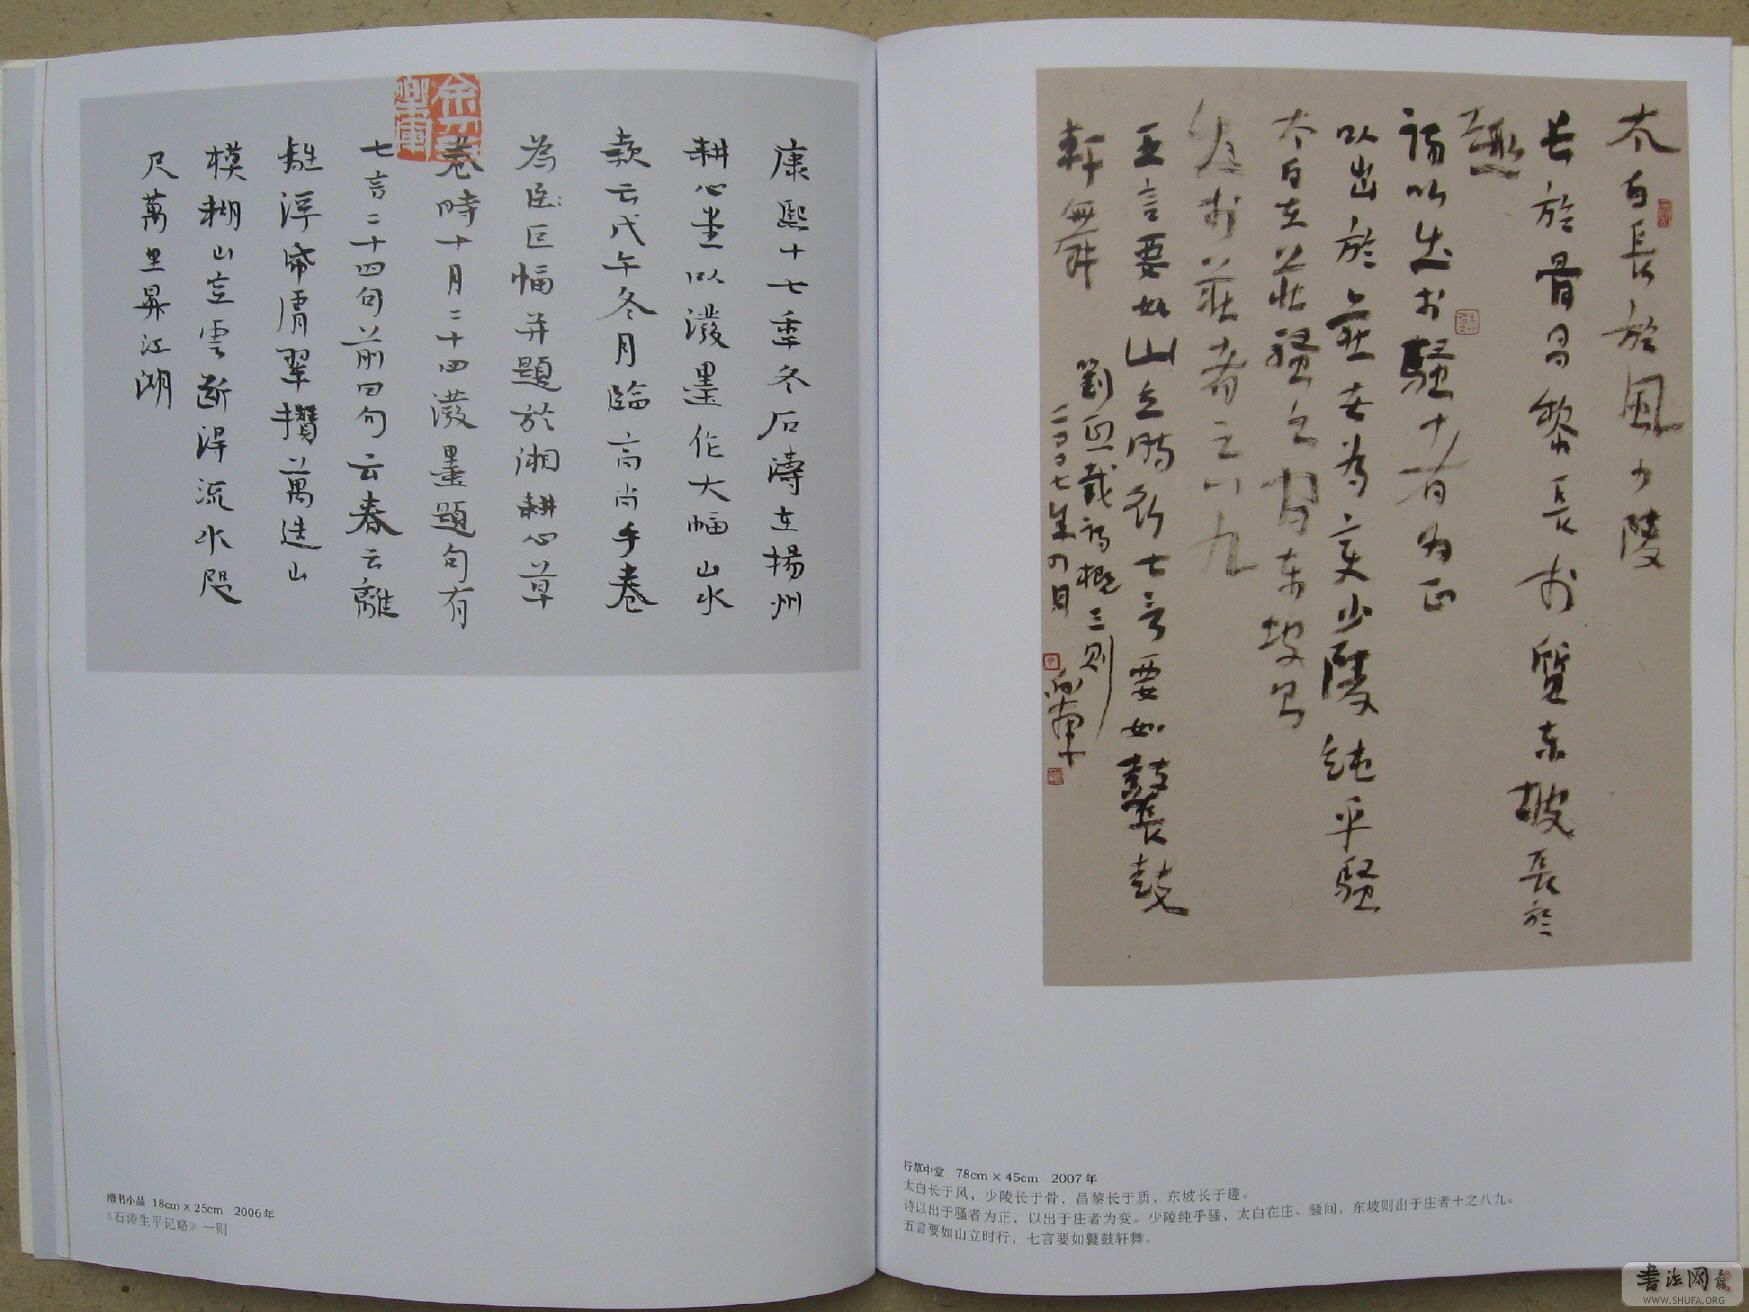 康熙十七年冬石濤在揚州
耕心堂以潑墨作大幅山水
款云戊午冬月臨高尚手卷
為臣巨幅并題於湘耕心草
卷時十月二十四潑墨題句有
七言二十四句前四句云春云離
離浮帋膚翠攢萬迭山
模糊山空雲斷得流水咫
尺萬里昇江湖
楷书小品 18cm×25cm 2006年
《石涛生平记略》一则
太白長於風少陵
長於骨昌黎長於質東坡長於
趣
詩以出於騷者為正
以出於莊者為变少陵純乎騷
太白在莊騷之間東坡則
出於莊者之八九
五言要如山立時行七言要如鼙鼓
軒舞
劉熙載詩概三則
二〇〇七年四月
行草中堂 78cm×45cm 2007年
太白长于风，少陵长于骨，昌黎长于质，东坡长于趣。
诗以出于骚者为正，以出于庄者为变。少陵纯乎骚，太白在庄、骚间，东坡则出于庄者十之八九。
五言要如山立时行，七言要如鼙鼓轩舞。
書法网
WWW.SHUFA.ORG